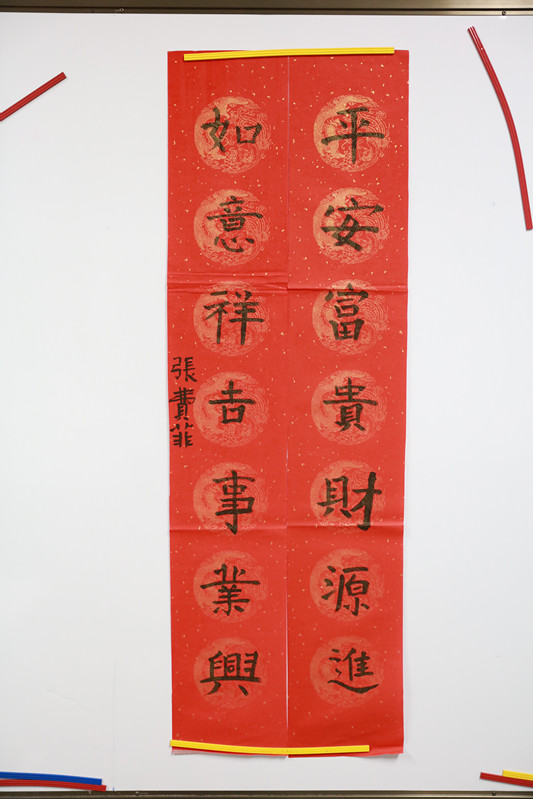 平安富貴財源進
如意祥吉事業興
張費菲